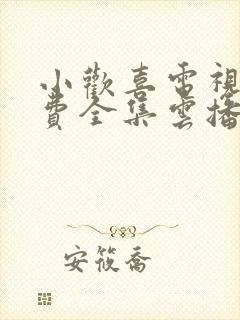 小歡喜電視
費全集雲播
安筱喬